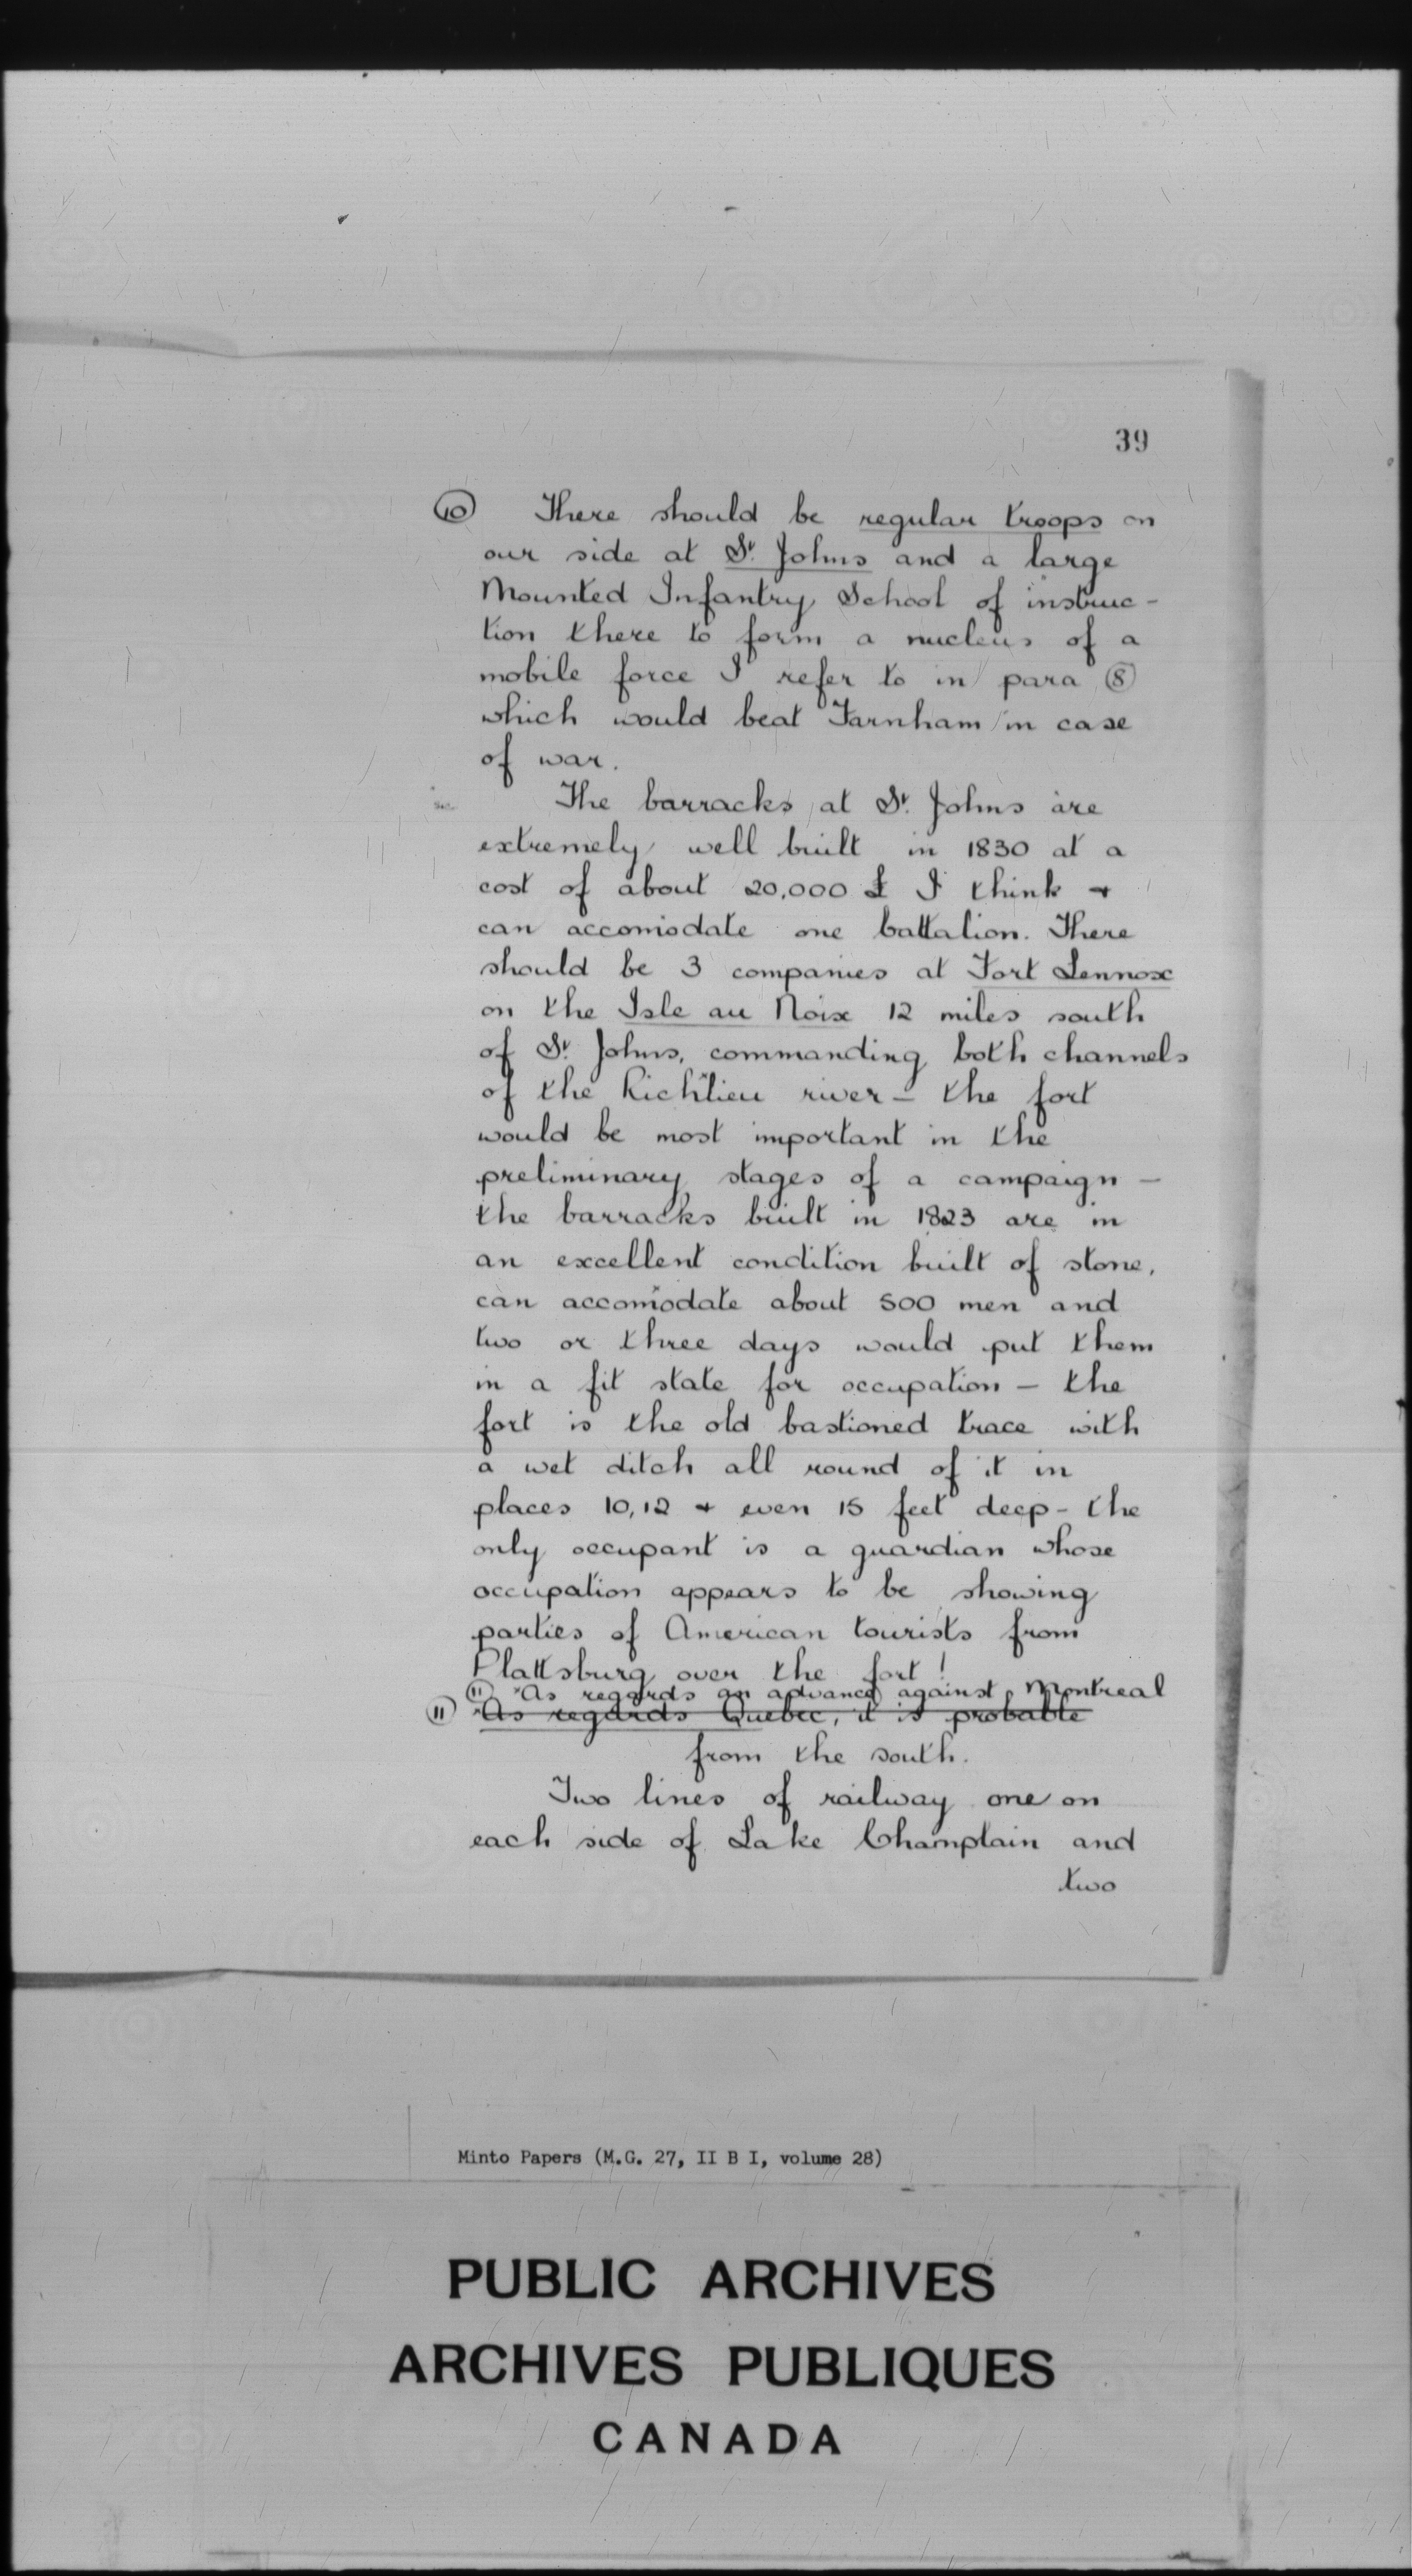 39
⑩ There should be regular troops on
our side at St. Johns and a large
Mounted Infantry School of instruc-
tion there to form a nucleus of a
mobile force I refer to in para ⑧
which would beat Farnham in case
of war.
The barracks at St. Johns are
extremely well built in 1830 at a
cost of about 20,000 £ I think +
can accomodate one battalion. There
should be 3 companies at Fort Lennox
on the Isle au Noix 12 miles south
of St. Johns, commanding both channels
of the Richilieu river - the fort
would be most important in the
preliminary stages of a campaign -
the barracks built in 1823 are in
an excellent condition built of stone,
can accomodate about 500 men and
two or three days would put them
in a fit state for occupation - the
fort is the old bastioned trace with
a wet ditch all round of it in
places 10, 12 + even 15 feet deep - the
only occupant is a guardian whose
occupation appears to be showing
parties of American tourists from
Plattsburg over the fort!
⑪ "As regards an advance against Montreal
⑪ "As regards Quebec, it is probable
from the south.
Two lines of railway one on
each side of Lake Champlain and
two
Minto Papers (M.G. 27, II B I, volume 28)
PUBLIC ARCHIVES
ARCHIVES PUBLIQUES
CANADA